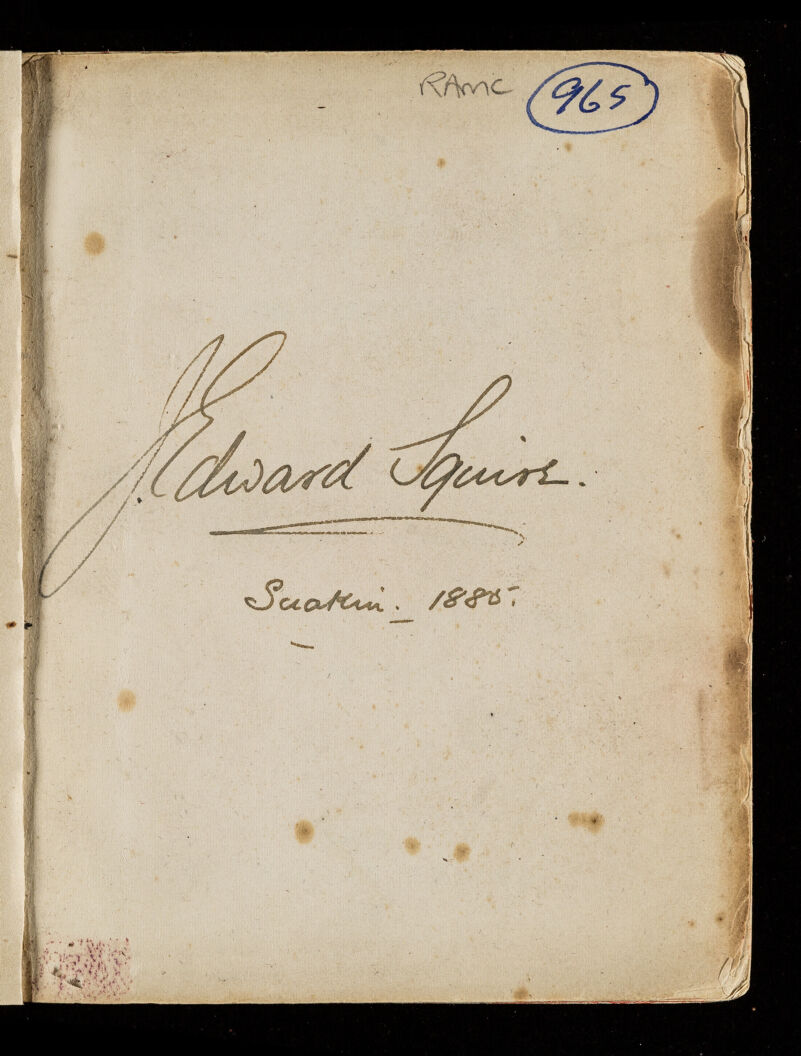 RAMC 965
J. Edward Squire.
Suakin. 1885.